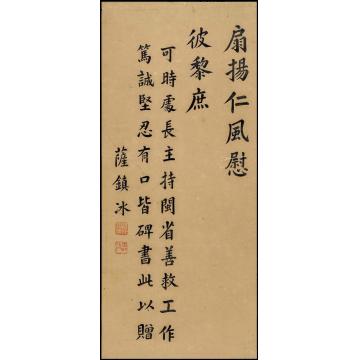 扇揚仁風慰
彼黎庶
可時處長主持閩省善救工作
篤誠堅忍有口皆碑書此以贈
薩鎮冰